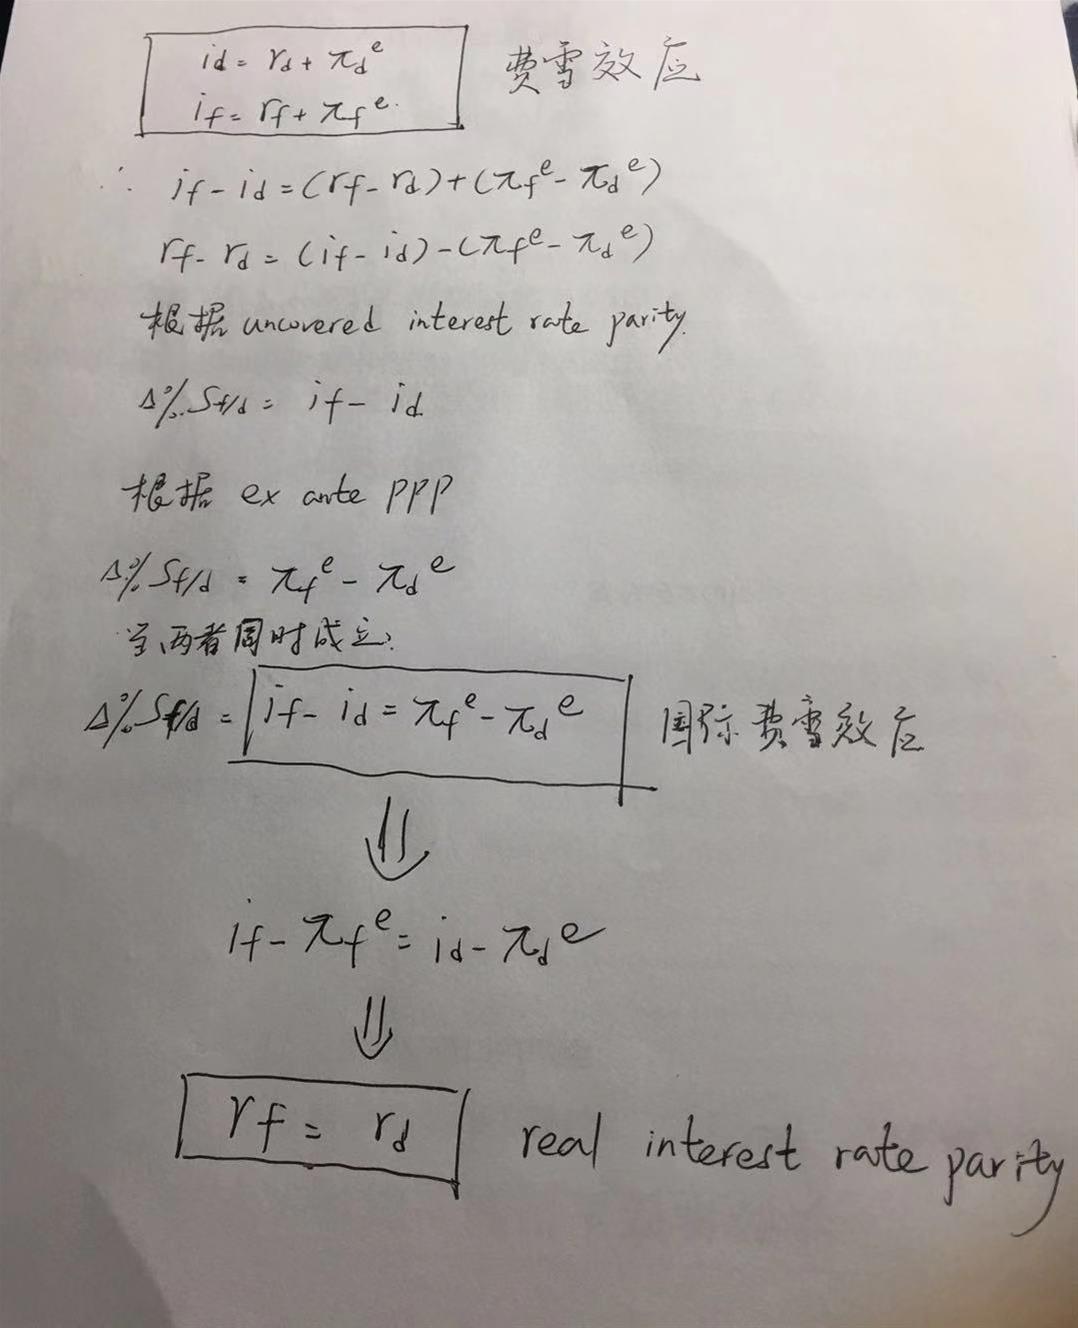 id = rd + πd^e 费雪效应
if = rf + πf^e
∴ if - id = (rf - rd) + (πf^e - πd^e)
rf - rd = (if - id) - (πf^e - πd^e)
根据 uncovered interest rate parity.
Δ% Sf/d = if - id
根据 ex ante PPP
Δ% Sf/d = πf^e - πd^e
当两者同时成立:
Δ% Sf/d = if - id = πf^e - πd^e 国际费雪效应
⇓
if - πf^e = id - πd^e
⇓
rf = rd real interest rate parity